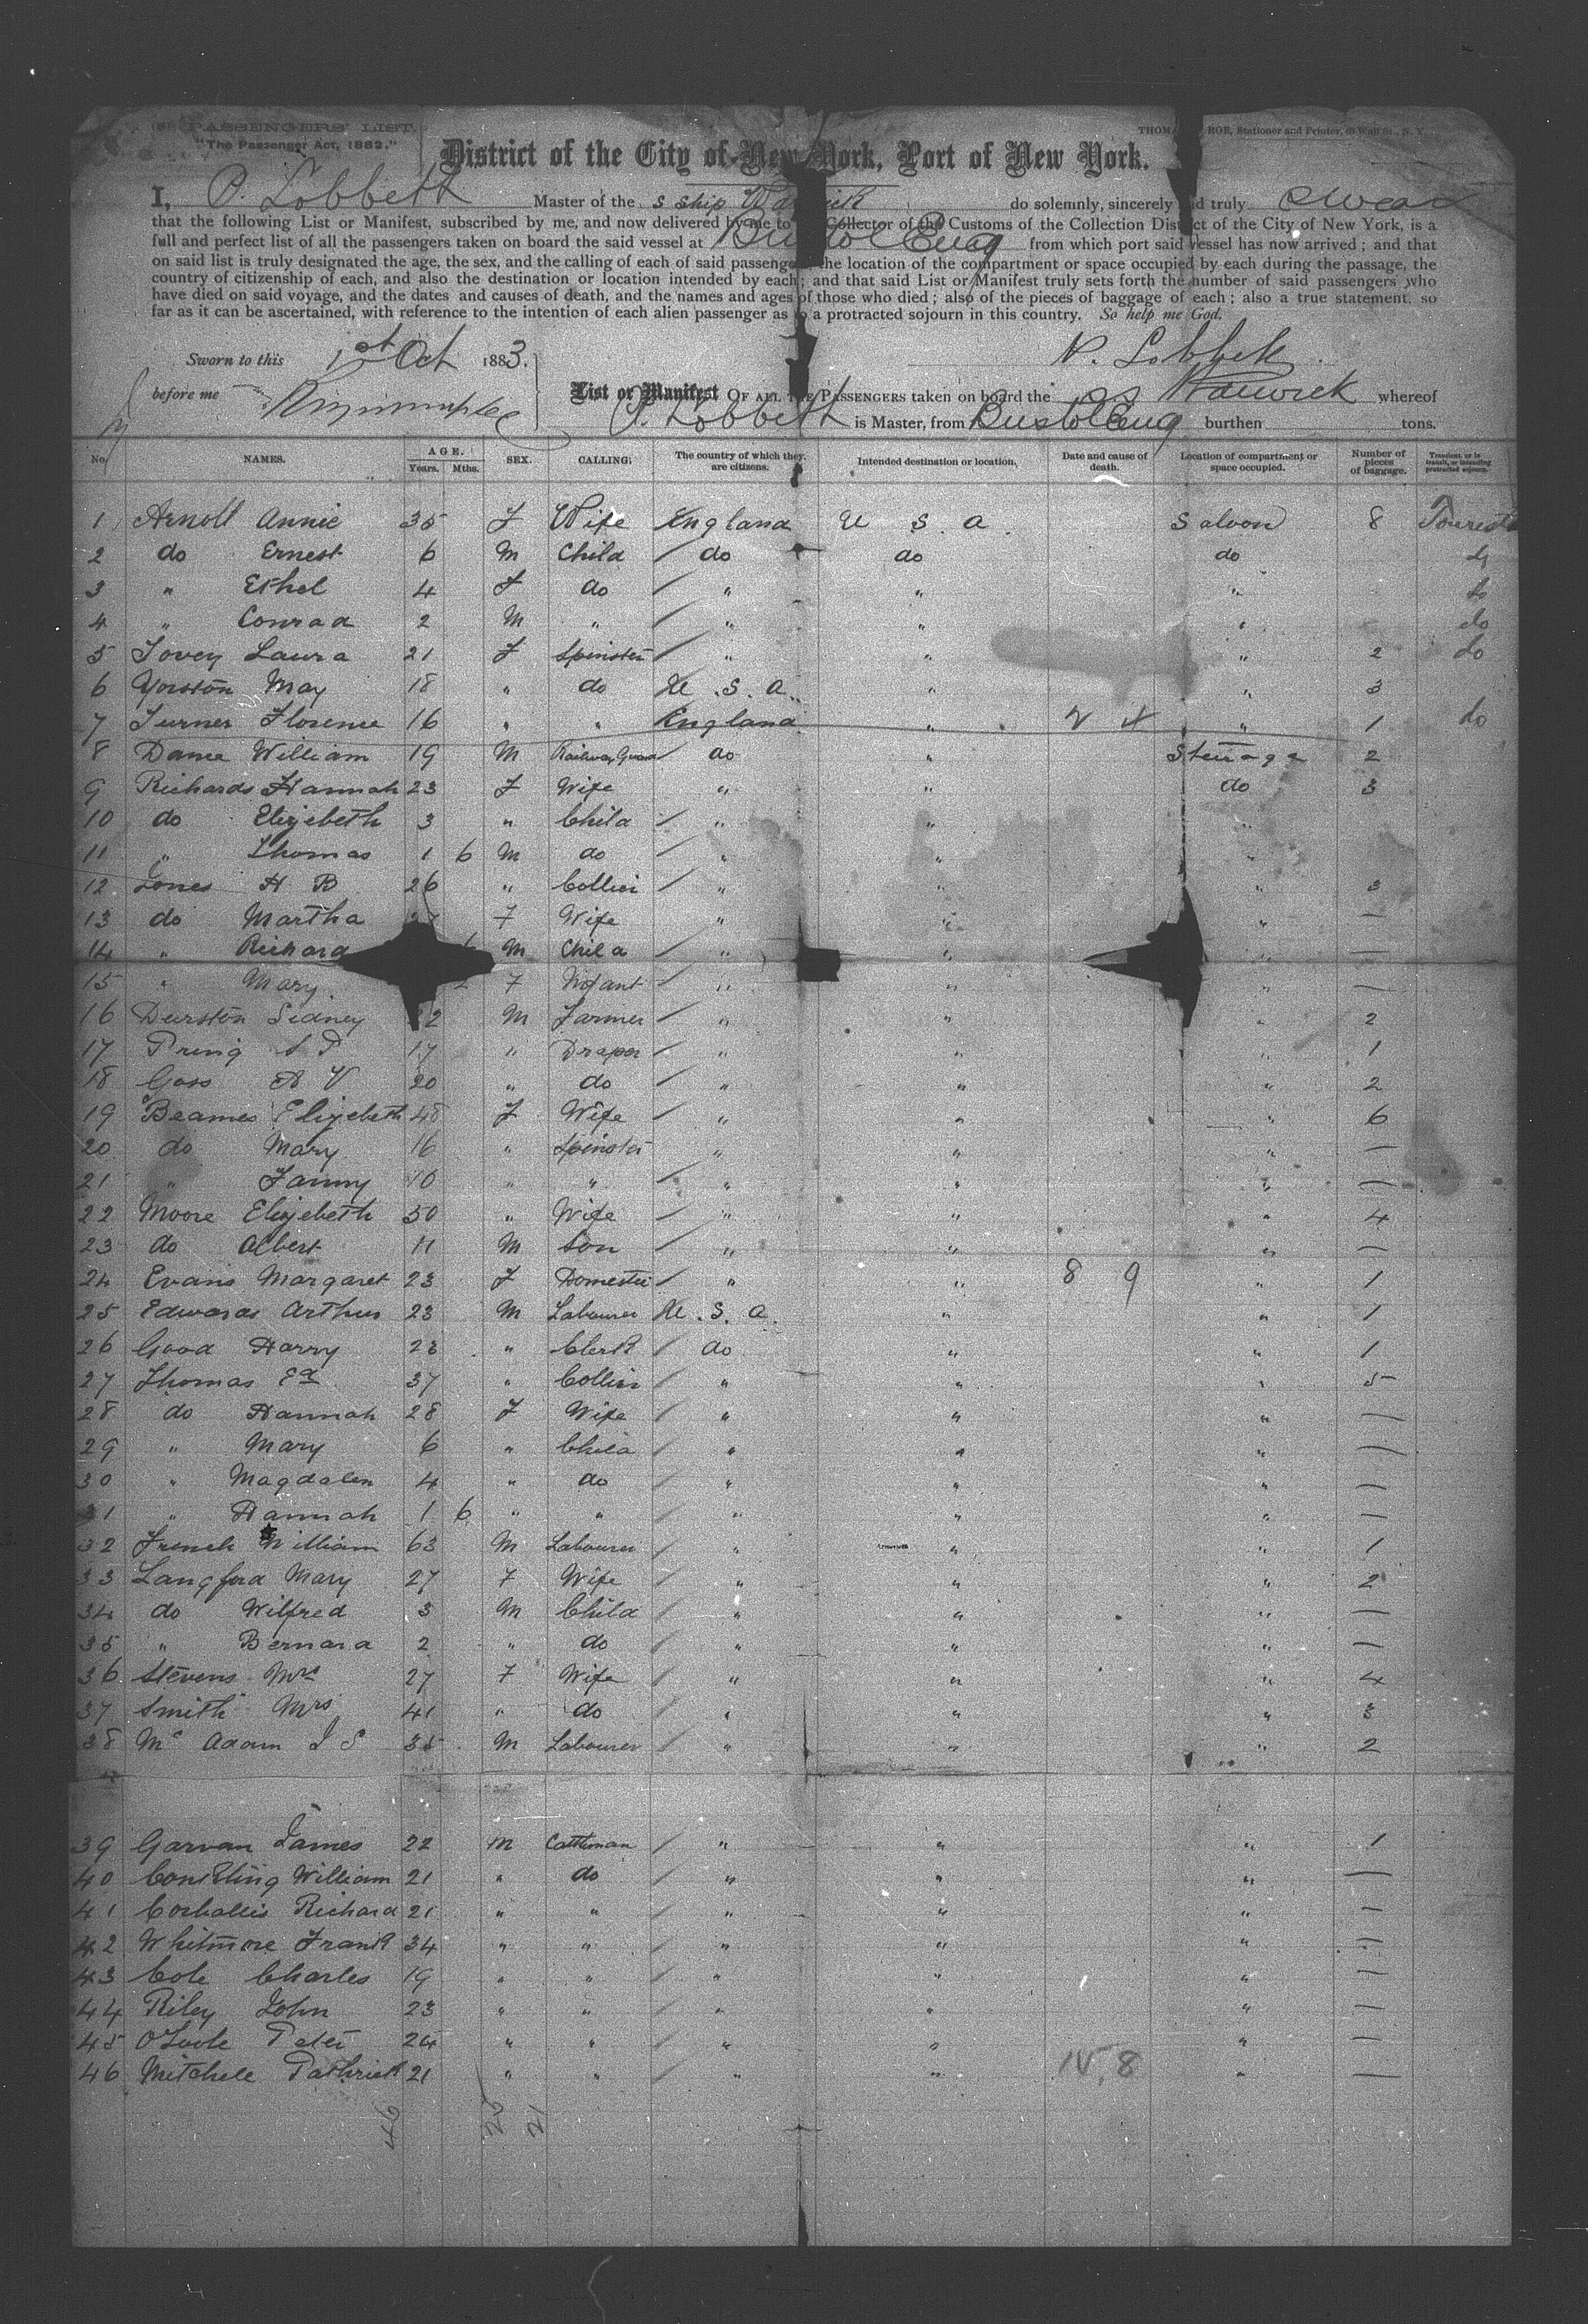 PASSENGERS' LIST.
"The Passenger Act, 1882."
THOMA ROE, Stationer and Printer, 63 Wall St., N. Y.
District of the City of New York, Port of New York.
I, P. Lobbett Master of the s ship Warwick do solemnly, sincerely and truly swear
that the following List or Manifest, subscribed by me, and now delivered by me to the Collector of the Customs of the Collection District of the City of New York, is a
full and perfect list of all the passengers taken on board the said vessel at Bristol Eng from which port said vessel has now arrived ; and that
on said list is truly designated the age, the sex, and the calling of each of said passengers, the location of the compartment or space occupied by each during the passage, the
country of citizenship of each, and also the destination or location intended by each ; and that said List or Manifest truly sets forth the number of said passengers who
have died on said voyage, and the dates and causes of death, and the names and ages of those who died ; also of the pieces of baggage of each ; also a true statement, so
far as it can be ascertained, with reference to the intention of each alien passenger as to a protracted sojourn in this country. So help me God.
Sworn to this 1st Oct 1883. P. Lobbett
before me
List or Manifest OF ALL THE PASSENGERS taken on board the ss Warwick whereof
P. Lobbett is Master, from Bristol Eng burthen tons.
No. NAMES. AGE. Years. Mths. SEX. CALLING. The country of which they are citizens. Intended destination or location. Date and cause of death. Location of compartment or space occupied. Number of pieces of baggage. Transient, or in transit, or intending protracted sojourn.
1 Arnoll Annie 35 F Wife England U S A Saloon 8 Tourists
2 do Ernest 6 M Child do do do do
3 " Ethel 4 F do " " " do
4 " Conrad 2 M " " " " do
5 Tovey Laura 21 F Spinster " " " 2 do
6 Yorston May 18 " do U. S. A. " " 3
7 Turner Florence 16 " " England " 2 4 " 1 do
8 Dance William 19 M Railway Guard do " Steerage 2
9 Richards Hannah 23 F Wife " " do 3
10 do Elizebeth 3 " Child " " "
11 " Thomas 1 6 M do " " "
12 Jones H B 26 " Collier " " " 3
13 do Martha 27 F Wife " " " —
14 " Richard M Child " " " —
15 " Mary F Infant " " " —
16 Durston Sidney 22 M Farmer " " " 2
17 Pring S P 17 " Draper " " " 1
18 Goss A V 20 " do " " " 2
19 Beames Elizebeth 48 F Wife " " " 6
20 do Mary 16 " Spinster " " " —
21 " Fanny 10 " " " " " —
22 Moore Elizebeth 50 " Wife " " " 4
23 do Albert 11 M Son " " " —
24 Evans Margaret 23 F Domestic " " 8 9 " 1
25 Edwards Arthur 23 M Labourer U. S. A. " " 1
26 Good Harry 23 " Clerk do " " 1
27 Thomas Ed 37 " Collier " " " 5
28 do Hannah 28 F Wife " " " —
29 " Mary 6 " Child " " " —
30 " Magdalen 4 " do " " " —
31 " Hannah 1 6 " " " " " —
32 French William 63 M Labourer " " " 1
33 Langford Mary 27 F Wife " " " 2
34 do Wilfred 3 M Child " " " —
35 " Bernard 2 " do " " " —
36 Stevens Mrs 27 F Wife " " " 4
37 Smith Mrs 41 " do " " " 3
38 Mc Adam J S 35 M Labourer " " " 2
39 Garvan James 22 M Cattleman " " " 1
40 Conkling William 21 " do " " " —
41 Corballis Richard 21 " " " " " —
42 Whitmore Frank 34 " " " " " —
43 Cole Charles 19 " " " " " —
44 Riley John 23 " " " " " —
45 O'Toole Peter 24 " " " " " —
46 Mitchell Pathrick 21 " " " " 15, 8 " —
46 21